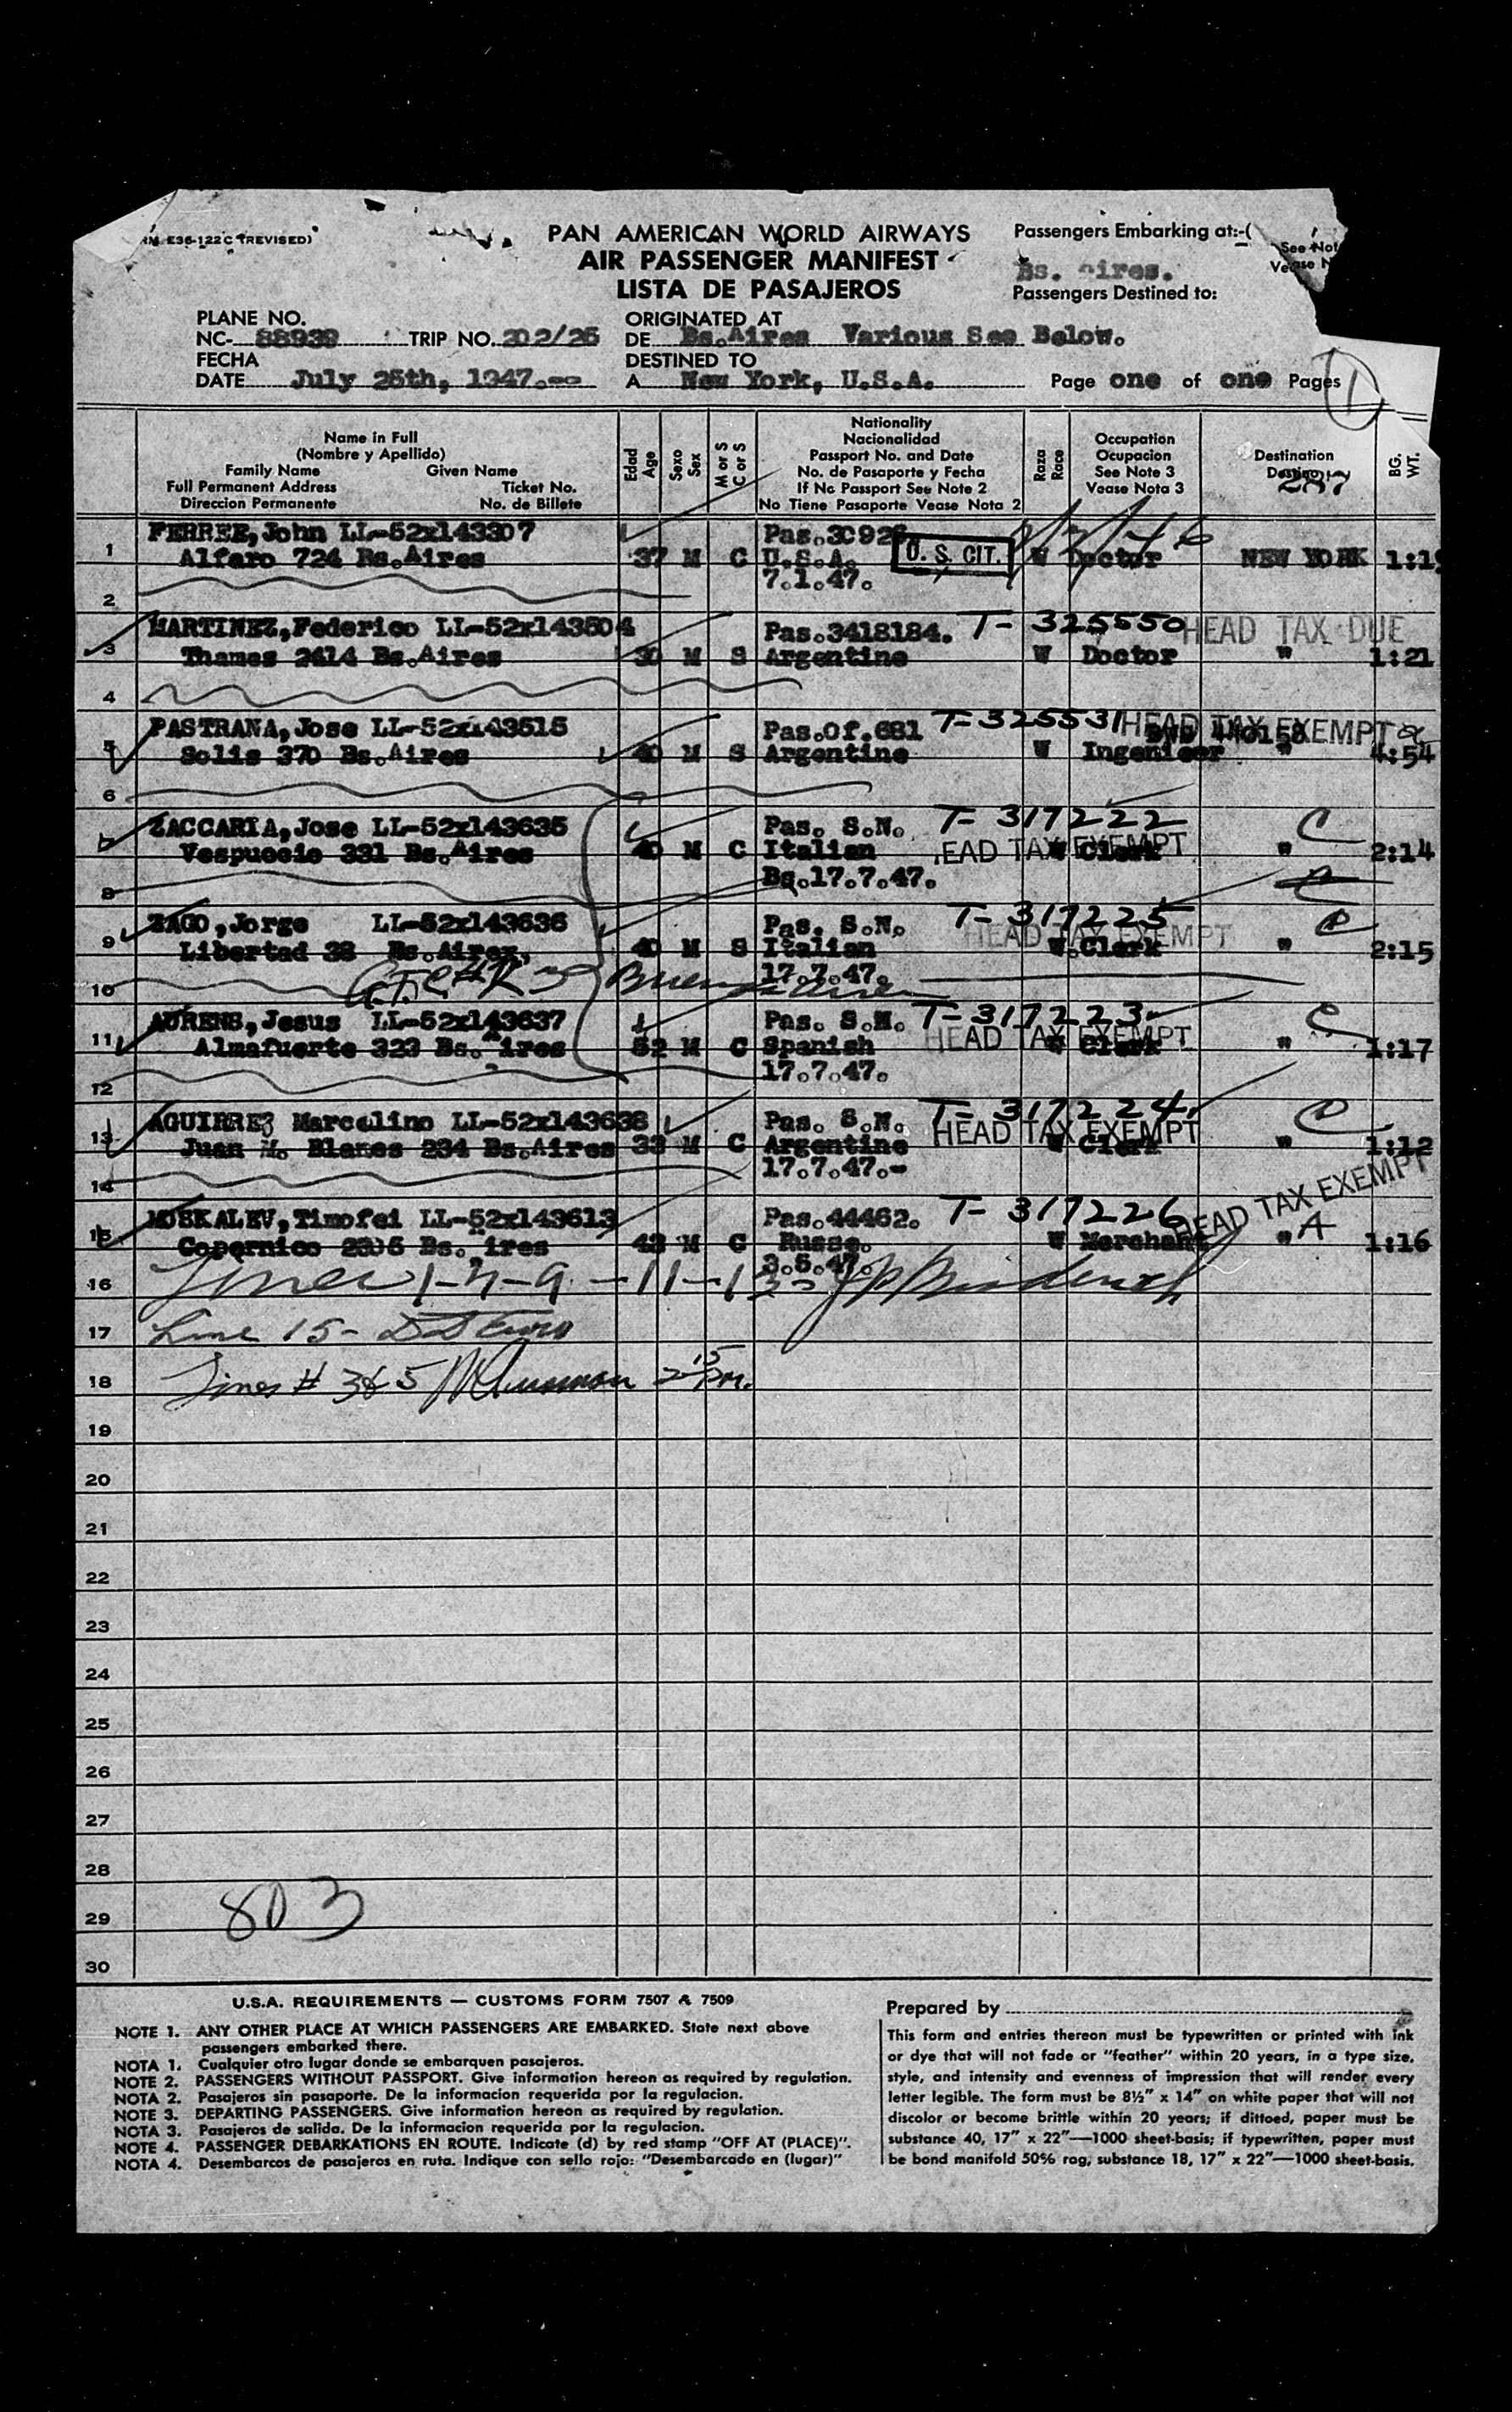 RM E36-122C (REVISED)
PAN AMERICAN WORLD AIRWAYS
AIR PASSENGER MANIFEST
LISTA DE PASAJEROS
Passengers Embarking at:-(
See Not
Vease N
Bs. Aires.
Passengers Destined to:
PLANE NO.
NC- 88939 TRIP NO. 202/25
ORIGINATED AT
DE Bs.Aires Various See Below.
FECHA
DATE July 25th, 1947.--
DESTINED TO
A New York, U.S.A.
Page one of one Pages
1
Name in Full
(Nombre y Apellido)
Family Name Given Name
Full Permanent Address Ticket No.
Direccion Permanente No. de Billete
Edad
Age
Sexo
Sex
M or S
C or S
Nationality
Nacionalidad
Passport No. and Date
No. de Pasaporte y Fecha
If No Passport See Note 2
No Tiene Pasaporte Vease Nota 2
Raza
Race
Occupation
Ocupacion
See Note 3
Vease Nota 3
Destination
Destino
287
BG.
WT.
1 FERREE,John LL-52x143307 Pas.30926
Alfaro 724 Bs.Aires 37 M C U.S.A. U. S. CIT. W Doctor NEW YORK
7.1.47.
2
3 MARTINEZ,Federico LL-52x143504 Pas.3418184. T- 325550 HEAD TAX DUE
Thames 2414 Bs.Aires 30 M S Argentine W Doctor " 1:21
4
5 PASTRANA,Jose LL-52x143515 Pas.Of.681 T-325531 HEAD TAX EXEMPT
Solis 370 Bs.Aires 40 M S Argentine W Ingenieer " 4:54
6
7 ZACCARIA,Jose LL-52x143635 Pas. S.N. T- 317222
Vespuccio 331 Bs.Aires 40 M C Italian EAD TAX EXEMPT W Clerk " 2:14
Bs.17.7.47.
8
9 ZAGO,Jorge LL-52x143636 Pas. S.N. T- 317225
Libertad 38 Bs.Aires, 40 M S Italian HEAD TAX EXEMPT W.Clerk " 2:15
17.7.47.
10
11 AURENS,Jesus LL-52x143637 Pas. S.N. T-317223
Almafuerte 323 Bs.Aires 52 M C Spanish HEAD TAX EXEMPT W Clerk " 1:17
17.7.47.
12
13 AGUIRRE, Marcelino LL-52x143638 Pas. S.N. T- 317224
Juan M. Blanes 234 Bs.Aires 33 M C Argentine HEAD TAX EXEMPT W Clerk " 1:12
17.7.47.-
14
15 MOSKALEV,Timofei LL-52x143613 Pas.44462. T- 317226 HEAD TAX EXEMPT
Copernico 2305 Bs. ires 43 M C Russe. W Merchant " A 1:16
3.5.47.
16 Lines 1-7-9-11-13
17 Line 15-
18 Lines # 3&5 2 15 PM.
19
20
21
22
23
24
25
26
27
28
803
29
30
U.S.A. REQUIREMENTS — CUSTOMS FORM 7507 & 7509
NOTE 1. ANY OTHER PLACE AT WHICH PASSENGERS ARE EMBARKED. State next above
passengers embarked there.
NOTA 1. Cualquier otro lugar donde se embarquen pasajeros.
NOTE 2. PASSENGERS WITHOUT PASSPORT. Give information hereon as required by regulation.
NOTA 2. Pasajeros sin pasaporte. De la informacion requerida por la regulacion.
NOTE 3. DEPARTING PASSENGERS. Give information hereon as required by regulation.
NOTA 3. Pasajeros de salida. De la informacion requerida por la regulacion.
NOTE 4. PASSENGER DEBARKATIONS EN ROUTE. Indicate (d) by red stamp "OFF AT (PLACE)".
NOTA 4. Desembarcos de pasajeros en ruta. Indique con sello rojo: "Desembarcado en (lugar)"
Prepared by
This form and entries thereon must be typewritten or printed with ink
or dye that will not fade or "feather" within 20 years, in a type size,
style, and intensity and evenness of impression that will render every
letter legible. The form must be 8½" x 14" on white paper that will not
discolor or become brittle within 20 years; if dittoed, paper must be
substance 40, 17" x 22"—1000 sheet-basis; if typewritten, paper must
be bond manifold 50% rag, substance 18, 17" x 22"—1000 sheet-basis.